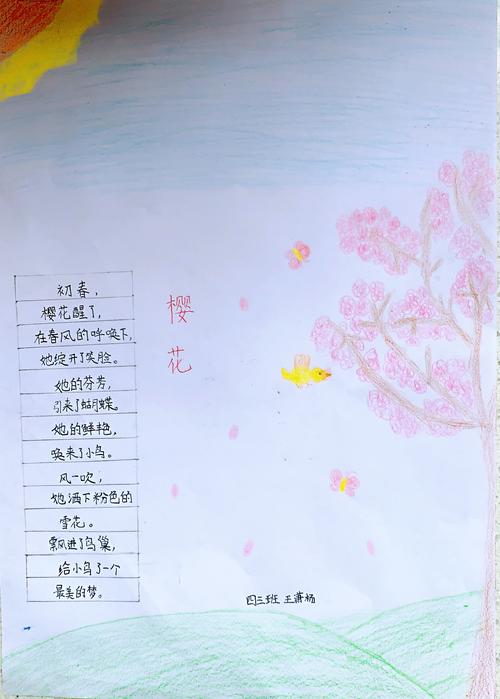 樱花
初春，
樱花醒了，
在春风的呼唤下，
她绽开了笑脸。
她的芬芳，
引来了蝴蝶。
她的鲜艳，
唤来了小鸟。
风一吹，
她洒下粉色的
雪花。
飘进了鸟巢，
给小鸟了一个
最美的梦。
四三班 王潇杨